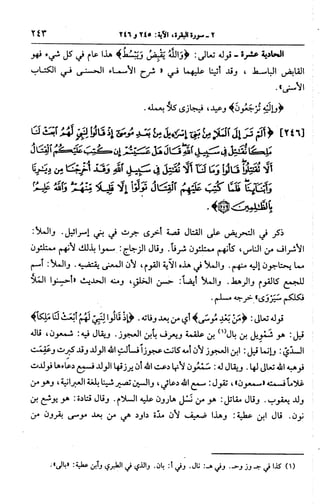 ٢ - سورة البقرة، الآية: ٢٤٥ و ٢٤٦
٢٤٣
الحادية عشرة - قوله تعالى: ﴿وَاللَّهُ يَقْبِضُ وَيَبْسُطُ﴾ هذا عام في كل شيء فهو
القابض الباسط، وقد أتينا عليهما في «شرح الأسماء الحسنى في الكتاب
الأسنى».
﴿وَإِلَيْهِ تُرْجَعُونَ﴾ وعيد، فيجازي كلاًّ بعمله.
[٢٤٦] ﴿أَلَمْ تَرَ إِلَى الْمَلَإِ مِنْ بَنِي إِسْرَائِيلَ مِنْ بَعْدِ مُوسَى إِذْ قَالُوا لِنَبِيٍّ لَهُمُ ابْعَثْ لَنَا
مَلِكًا نُقَاتِلْ فِي سَبِيلِ اللَّهِ قَالَ هَلْ عَسَيْتُمْ إِنْ كُتِبَ عَلَيْكُمُ الْقِتَالُ
أَلَّا تُقَاتِلُوا قَالُوا وَمَا لَنَا أَلَّا نُقَاتِلَ فِي سَبِيلِ اللَّهِ وَقَدْ أُخْرِجْنَا مِنْ دِيَارِنَا
وَأَبْنَائِنَا فَلَمَّا كُتِبَ عَلَيْهِمُ الْقِتَالُ تَوَلَّوْا إِلَّا قَلِيلًا مِنْهُمْ وَاللَّهُ عَلِيمٌ
بِالظَّالِمِينَ ﴿٢٤٦﴾﴾.
ذكر في التحريض على القتال قصة أخرى جرت في بني إسرائيل. والملأ:
الأشراف من الناس، كأنهم ممتلئون شرفاً. وقال الزجاج: سموا بذلك لأنهم ممتلئون
مما يحتاجون إليه منهم. والملأ في هذه الآية القوم، لأن المعنى يقتضيه. والملأ: اسم
للجمع كالقوم والرهط. والملأ أيضاً: حسن الخلق، ومنه الحديث «أحسنوا الملأ
فكلكم سيَرْوَى» خرجه مسلم.
قوله تعالى: ﴿مِنْ بَعْدِ مُوسَى﴾ أي من بعد وفاته. ﴿إِذْ قَالُوا لِنَبِيٍّ لَهُمُ ابْعَثْ لَنَا مَلِكًا﴾
قيل: هو شَمْوِيل بن بال(١) بن علقمة ويعرف بابن العجوز. ويقال فيه: شمعون، قاله
السدّيّ: وإنما قيل: ابن العجوز لأن أمه كانت عجوزاً فسألت الله الولد وقد كبرت وعقمت
فوهبه الله تعالى لها. ويقال له: سَمْعُون لأنها دعت الله أن يرزقها الولد فسمع دعاءها فولدت
غلاماً فسمته «سمعون»، تقول: سمع الله دعائي، والسين تصير شيناً بلغة العبرانية، وهو من
ولد يعقوب. وقال مقاتل: هو من نَسْل هارون عليه السلام. وقال قتادة: هو يوشع بن
نون. قال ابن عطية: وهذا ضعيف لأن مدّة داود هي من بعد موسى بقرون من
(١) كذا في جـ وز وحـ. وفي هـ: نال. وفي أ: بان. والذي في الطبري وابن عطية: «بالى».